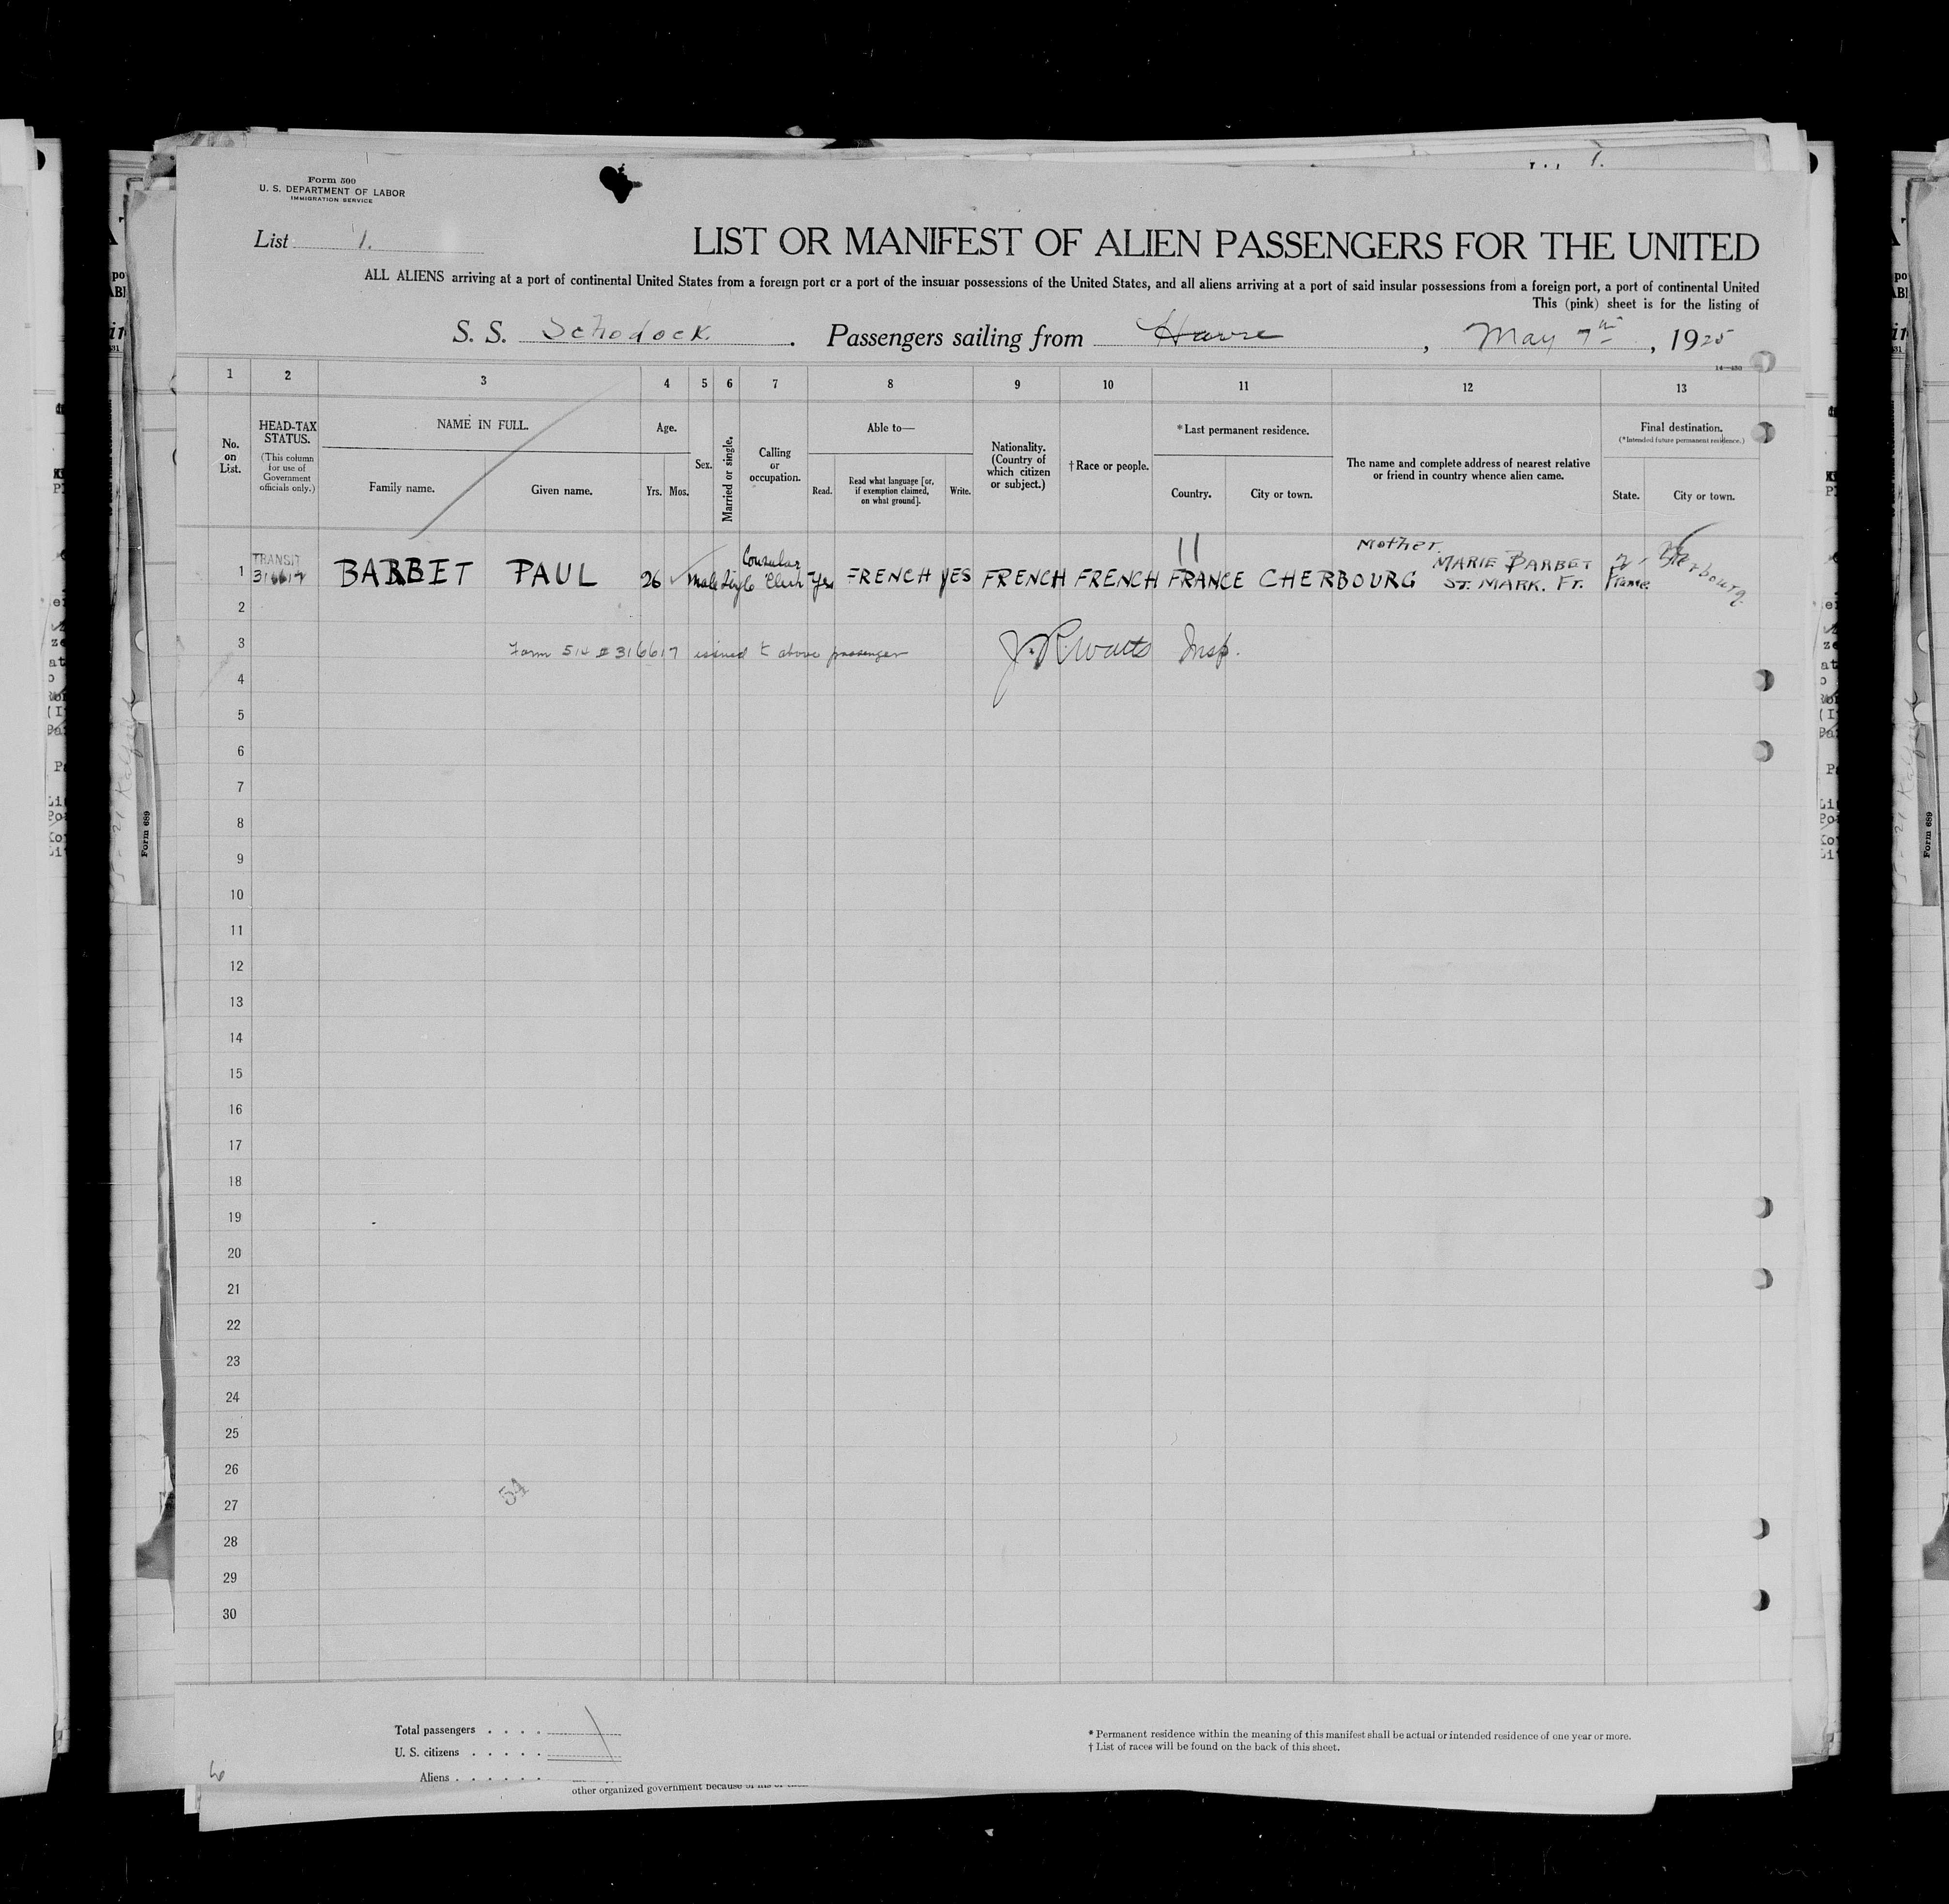 Form 500
U. S. DEPARTMENT OF LABOR
IMMIGRATION SERVICE
List 1.
LIST OR MANIFEST OF ALIEN PASSENGERS FOR THE UNITED
ALL ALIENS arriving at a port of continental United States from a foreign port or a port of the insular possessions of the United States, and all aliens arriving at a port of said insular possessions from a foreign port, a port of continental United
This (pink) sheet is for the listing of
S. S. Schodock. Passengers sailing from Havre, May 7th, 1925
14—430
1 2 3 4 5 6 7 8 9 10 11 12 13
No. on List.
HEAD-TAX STATUS.
(This column for use of Government officials only.)
NAME IN FULL.
Family name. Given name.
Age.
Yrs. Mos.
Sex.
Married or single.
Calling or occupation.
Able to—
Read. Read what language [or, if exemption claimed, on what ground]. Write.
Nationality. (Country of which citizen or subject.)
† Race or people.
* Last permanent residence.
Country. City or town.
The name and complete address of nearest relative or friend in country whence alien came.
Final destination.
(* Intended future permanent residence.)
State. City or town.
TRANSIT
316617
1 BARBET PAUL 26 Male Single Consular Clerk Yes FRENCH YES FRENCH FRENCH FRANCE CHERBOURG Mother. MARIE BARBET ST. MARK. Fr. France Cherbourg.
2
3 Form 514 # 316617 issued to above passenger Insp.
4
5
6
7
8
9
10
11
12
13
14
15
16
17
18
19
20
21
22
23
24
25
26
54
27
28
29
30
Total passengers . . . .
U. S. citizens . . . . .
Aliens . . . . . .
* Permanent residence within the meaning of this manifest shall be actual or intended residence of one year or more.
† List of races will be found on the back of this sheet.
other organized government because of his or
Form 689
Form 689